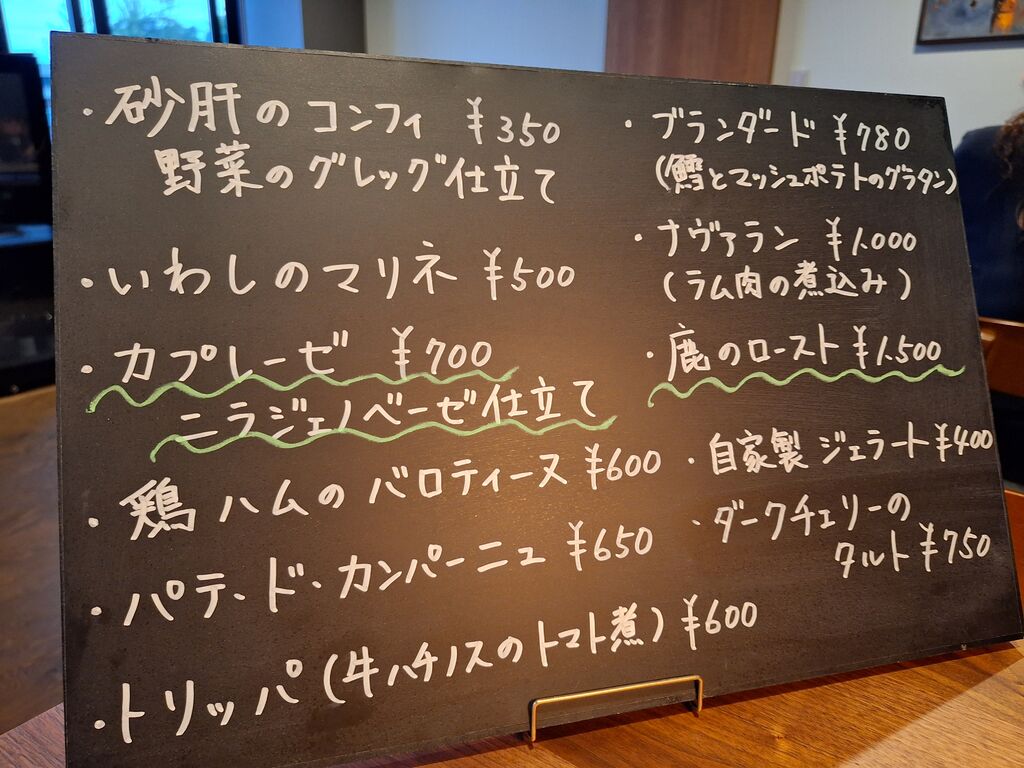 ・砂肝のコンフィ ¥350
野菜のグレッグ仕立て
・いわしのマリネ ¥500
・カプレーゼ ¥700
ニラジェノベーゼ仕立て
・鶏ハムのバロティーヌ ¥600
・パテ、ド・カンパーニュ ¥650
・トリッパ(牛ハチノスのトマト煮) ¥600
・ブランダード ¥780
(鱈とマッシュポテトのグラタン)
・ナヴァラン ¥1.000
(ラム肉の煮込み)
・鹿のロースト ¥1.500
・自家製ジェラート ¥400
・ダークチェリーの
タルト ¥750